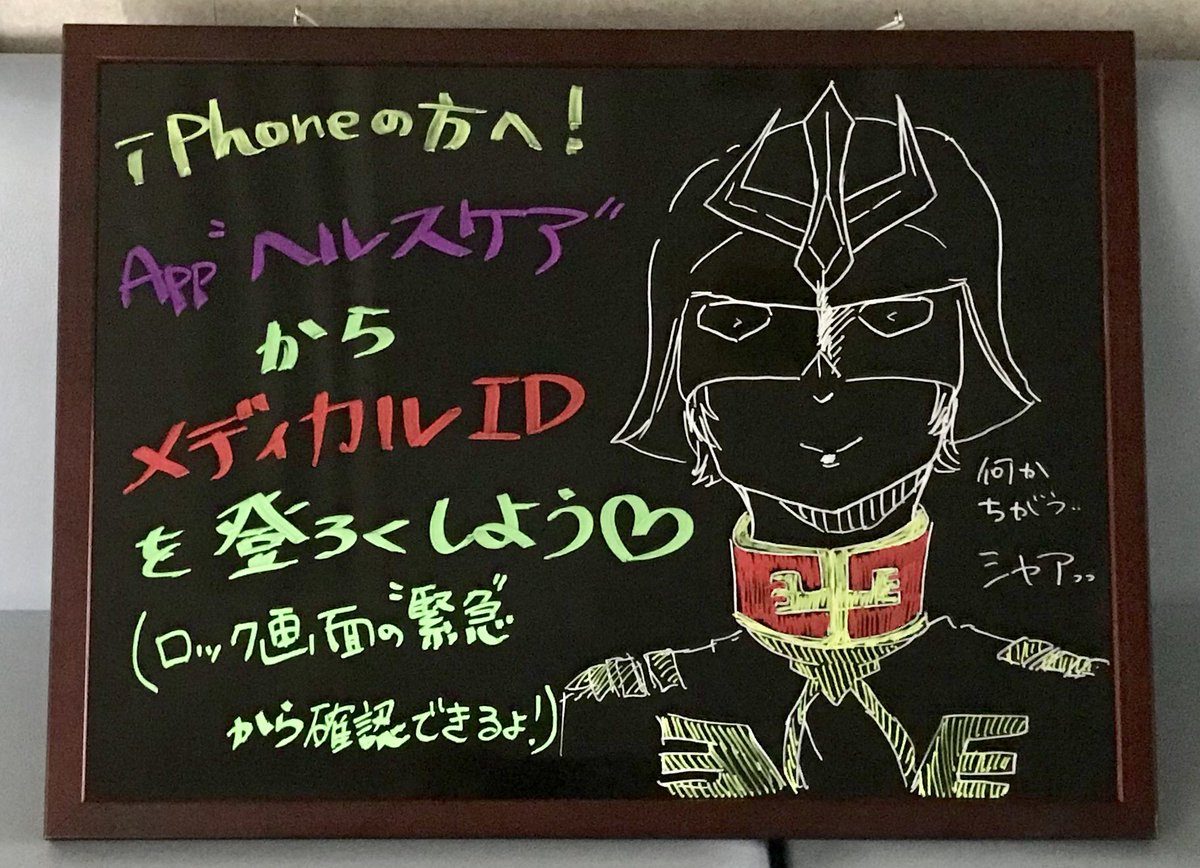 iPhoneの方へ!
App"ヘルスケア"
から
メディカルID
を登ろくしよう♡
(ロック画面の"緊急"
から確認できるよ!)
何か
ちがう..
シャアっっ